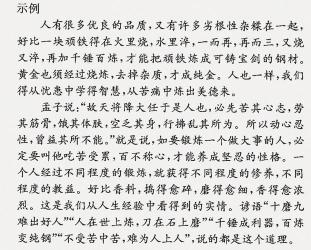 示例
人有很多优良的品质，又有许多劣根性杂糅在一起，
好比一块顽铁得在火里烧，水里淬，一而再，再而三，又烧
又淬，再加千锤百炼，才能把顽铁炼成可铸宝剑的钢材。
黄金也须经过烧炼，去掉杂质，才成纯金。人也一样，我们
得从忧患中学得智慧，从苦痛中炼出美德来。
孟子说：“故天将降大任于是人也，必先苦其心志，劳
其筋骨，饿其体肤，空乏其身，行拂乱其所为。所以动心忍
性，曾益其所不能。”就是说，如要锻炼一个做大事的人，必
定要叫他吃苦受累，百不称心，才能养成坚忍的性格。一
个人经过不同程度的锻炼，就获得不同程度的修养，不同
程度的效益。好比香料，捣得愈碎，磨得愈细，香得愈浓
烈。这是我们从人生经验中看得到的实情。谚语“十磨九
难出好人”“人在世上炼，刀在石上磨”“千锤成利器，百炼
变纯钢”“不受苦中苦，难为人上人”，说的都是这个道理。